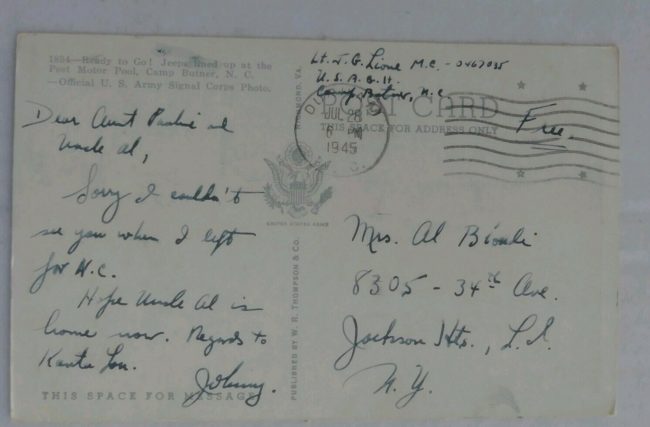 1894—Ready to Go! Jeeps lined up at the
Post Motor Pool, Camp Butner, N. C.
—Official U. S. Army Signal Corps Photo.
Lt. J. G. Lione M.C. - 0467035
U.S.A.G.H.
Camp Butner, N.C.
POST CARD
THIS SPACE FOR ADDRESS ONLY
Free
JUL 28
6 PM
1945
RICHMOND, VA.
UNITED STATES ARMY
PUBLISHED BY W. R. THOMPSON & CO.
Dear Aunt Pauline and
Uncle Al,
Sorry I couldn't
see you when I left
for N.C.
Hope Uncle Al is
home now. Regards to
Lou.
Johnny.
THIS SPACE FOR MESSAGE
Mrs. Al
8305 - 34th Ave.
Jackson Hts., L.I.
N.Y.